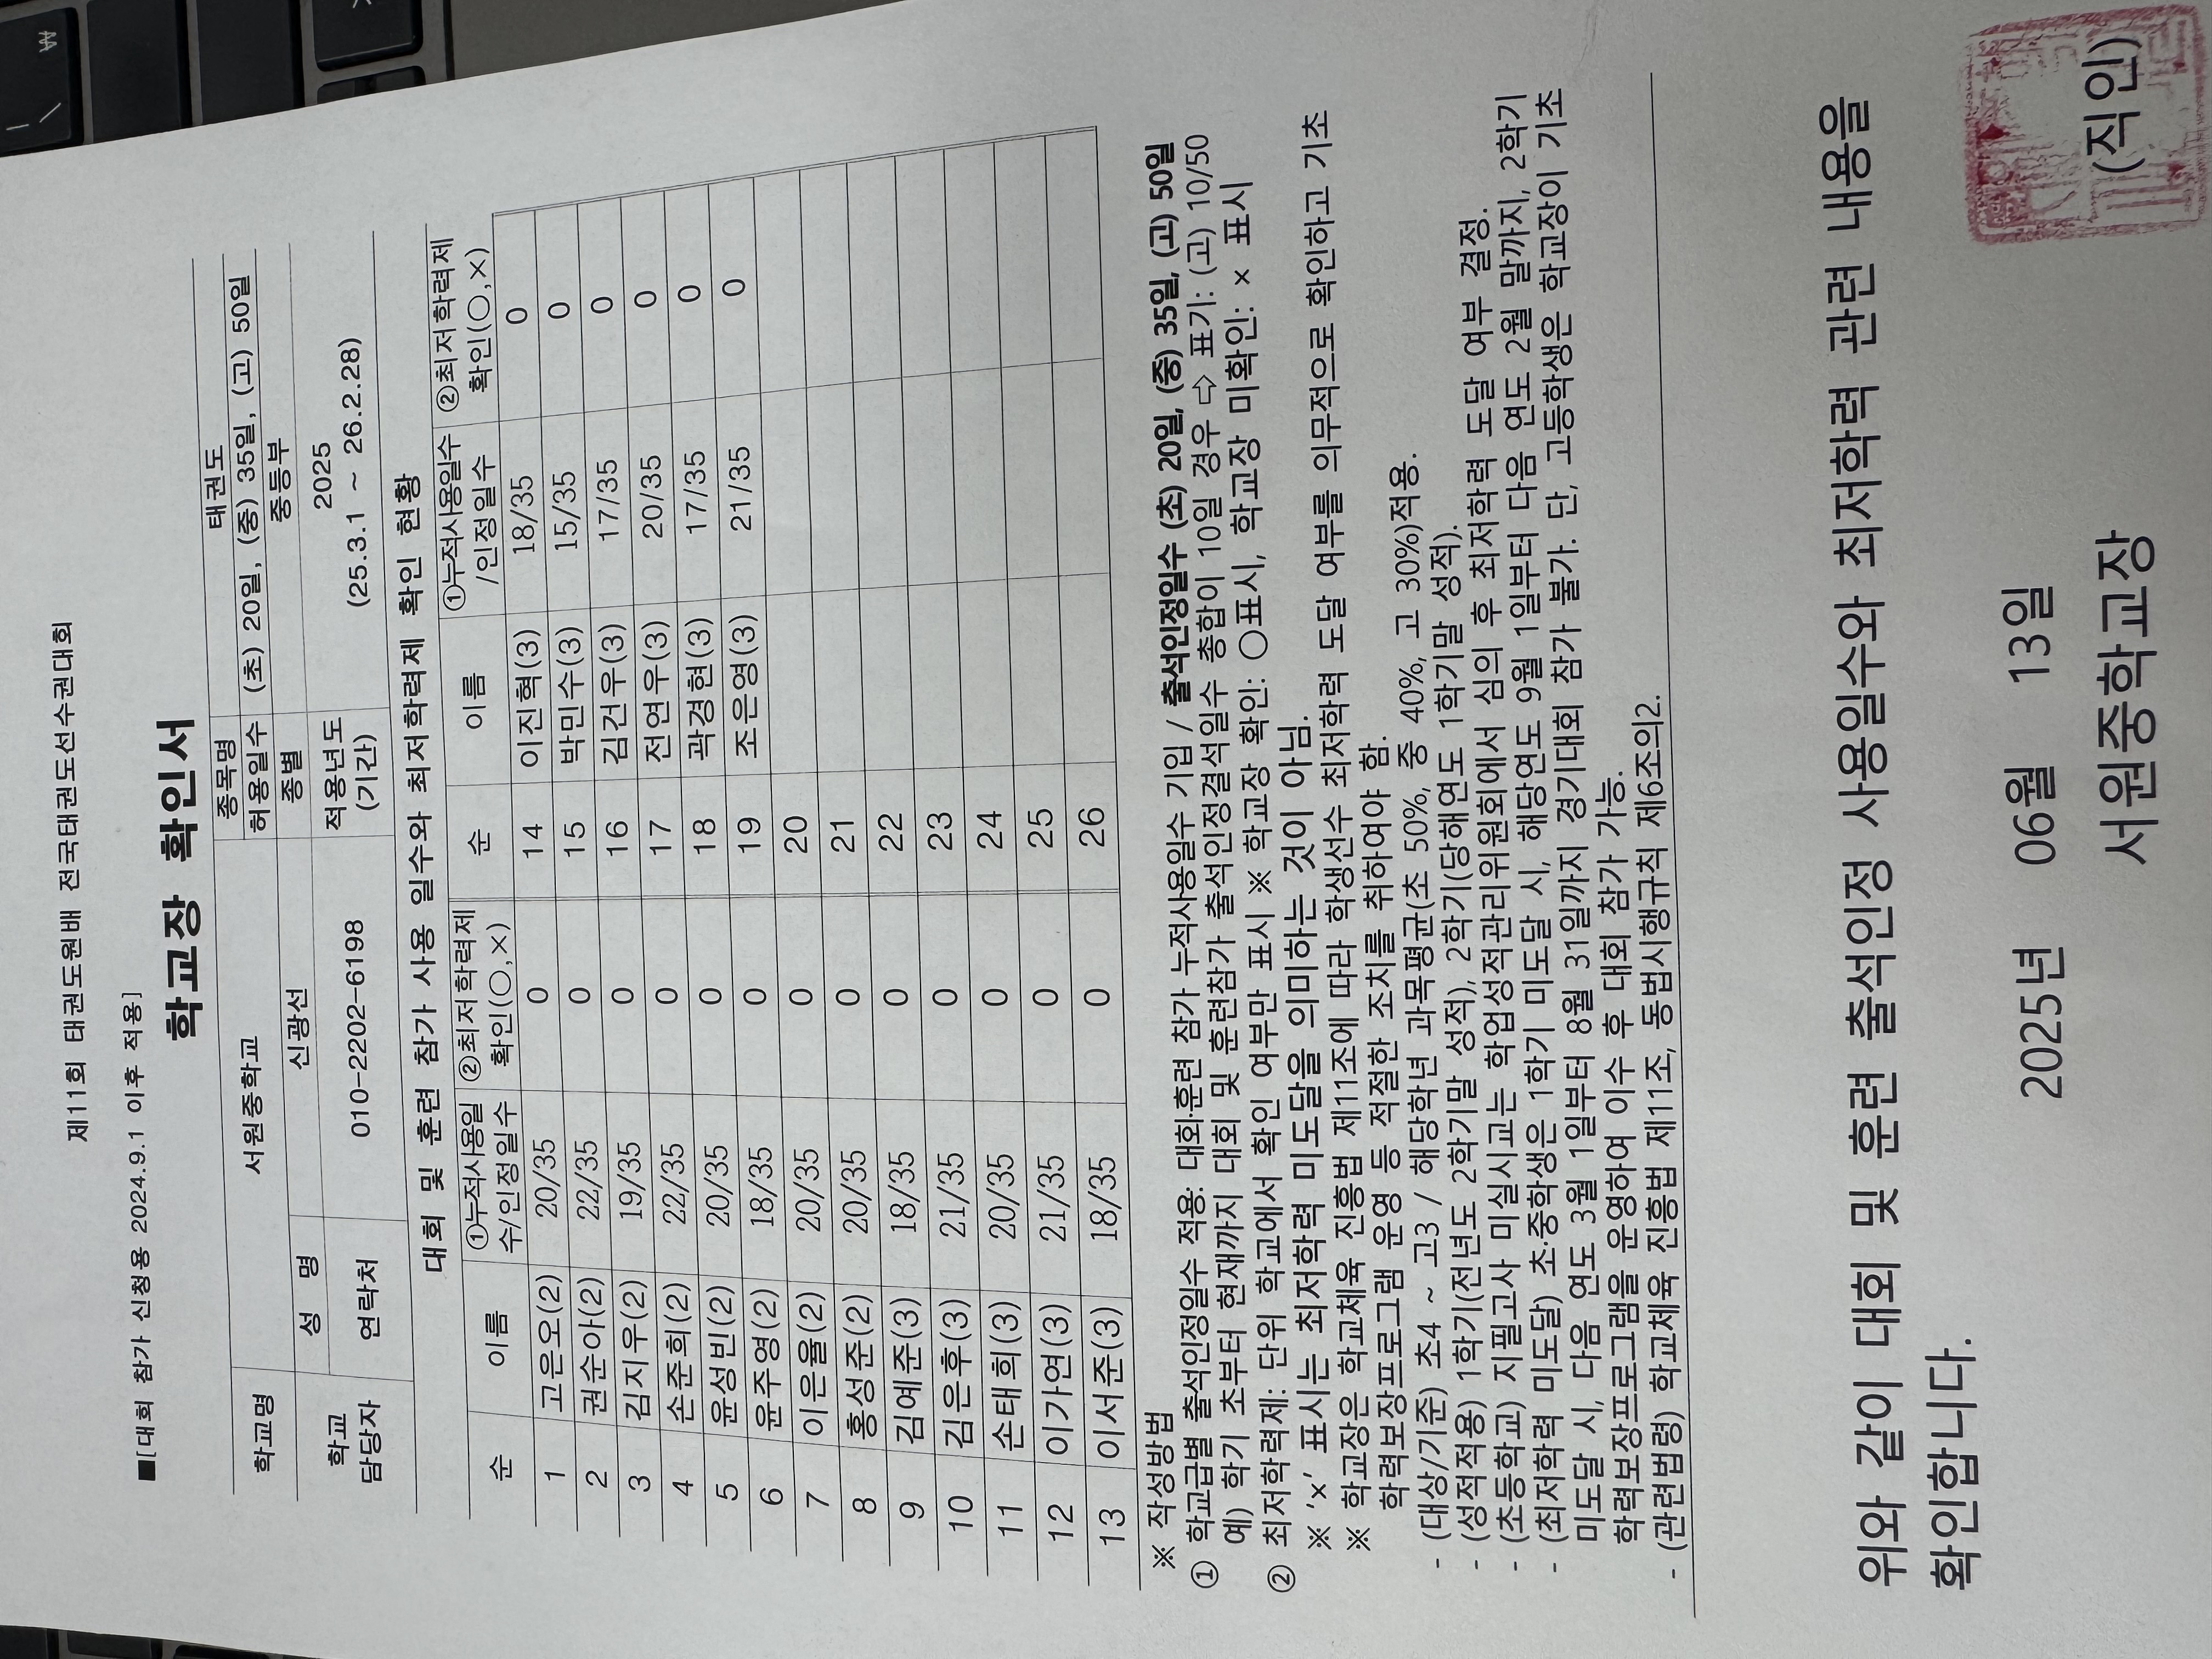 제11회 태권도원배 전국태권도선수권대회
■[대회 참가 신청용 2024.9.1 이후 적용]
학교장 확인서
학교명 서원중학교 종목명 태권도
허용일수 (초) 20일, (중) 35일, (고) 50일
학교 담당자 성 명 신광선 종별 중등부
연락처 010-2202-6198 적용년도 (기간) 2025 (25.3.1 ~ 26.2.28)
대회 및 훈련 참가 사용 일수와 최저학력제 확인 현황
순 이름 ①누적사용일수/인정일수 ②최저학력제 확인(○,×) 순 이름 ①누적사용일수/인정일수 ②최저학력제 확인(○,×)
1 고은오(2) 20/35 0 14 이진혁(3) 18/35 0
2 권순아(2) 22/35 0 15 박민수(3) 15/35 0
3 김지우(2) 19/35 0 16 김건우(3) 17/35 0
4 손준희(2) 22/35 0 17 전연우(3) 20/35 0
5 윤성빈(2) 20/35 0 18 곽경현(3) 17/35 0
6 윤주영(2) 18/35 0 19 조은영(3) 21/35 0
7 이은율(2) 20/35 0 20
8 홍성준(2) 20/35 0 21
9 김예준(3) 18/35 0 22
10 김은후(3) 21/35 0 23
11 손태희(3) 20/35 0 24
12 이가연(3) 21/35 0 25
13 이서준(3) 18/35 0 26
※ 작성방법
① 학교급별 출석인정일수 적용: 대회·훈련 참가 누적사용일수 기입 / 출석인정일수 (초) 20일, (중) 35일, (고) 50일
예) 학기 초부터 현재까지 대회 및 훈련참가 출석인정결석일수 총합이 10일 경우 ⇨ 표기: (고) 10/50
② 최저학력제: 단위 학교에서 확인 여부만 표시 ※ 학교장 확인: ○표시, 학교장 미확인: × 표시
※ ‘x’ 표시는 최저학력 미도달을 의미하는 것이 아님.
※ 학교장은 학교체육 진흥법 제11조에 따라 학생선수 최저학력 도달 여부를 의무적으로 확인하고 기초
학력보장프로그램 운영 등 적절한 조치를 취하여야 함.
- (대상/기준) 초4 ~ 고3 / 해당학년 과목평균(초 50%, 중 40%, 고 30%)적용.
- (성적적용) 1학기(전년도 2학기말 성적), 2학기(당해연도 1학기말 성적).
- (초등학교) 지필고사 미실시교는 학업성적관리위원회에서 심의 후 최저학력 도달 여부 결정.
- (최저학력 미도달) 초·중학생은 1학기 미도달 시, 해당연도 9월 1일부터 다음 연도 2월 말까지, 2학기
미도달 시, 다음 연도 3월 1일부터 8월 31일까지 경기대회 참가 불가. 단, 고등학생은 학교장이 기초
학력보장프로그램을 운영하여 이수 후 대회 참가 가능.
- (관련법령) 학교체육 진흥법 제11조, 동법시행규칙 제6조의2.
위와 같이 대회 및 훈련 출석인정 사용일수와 최저학력 관련 내용을
확인합니다.
2025년 06월 13일
서원중학교장 (직인)